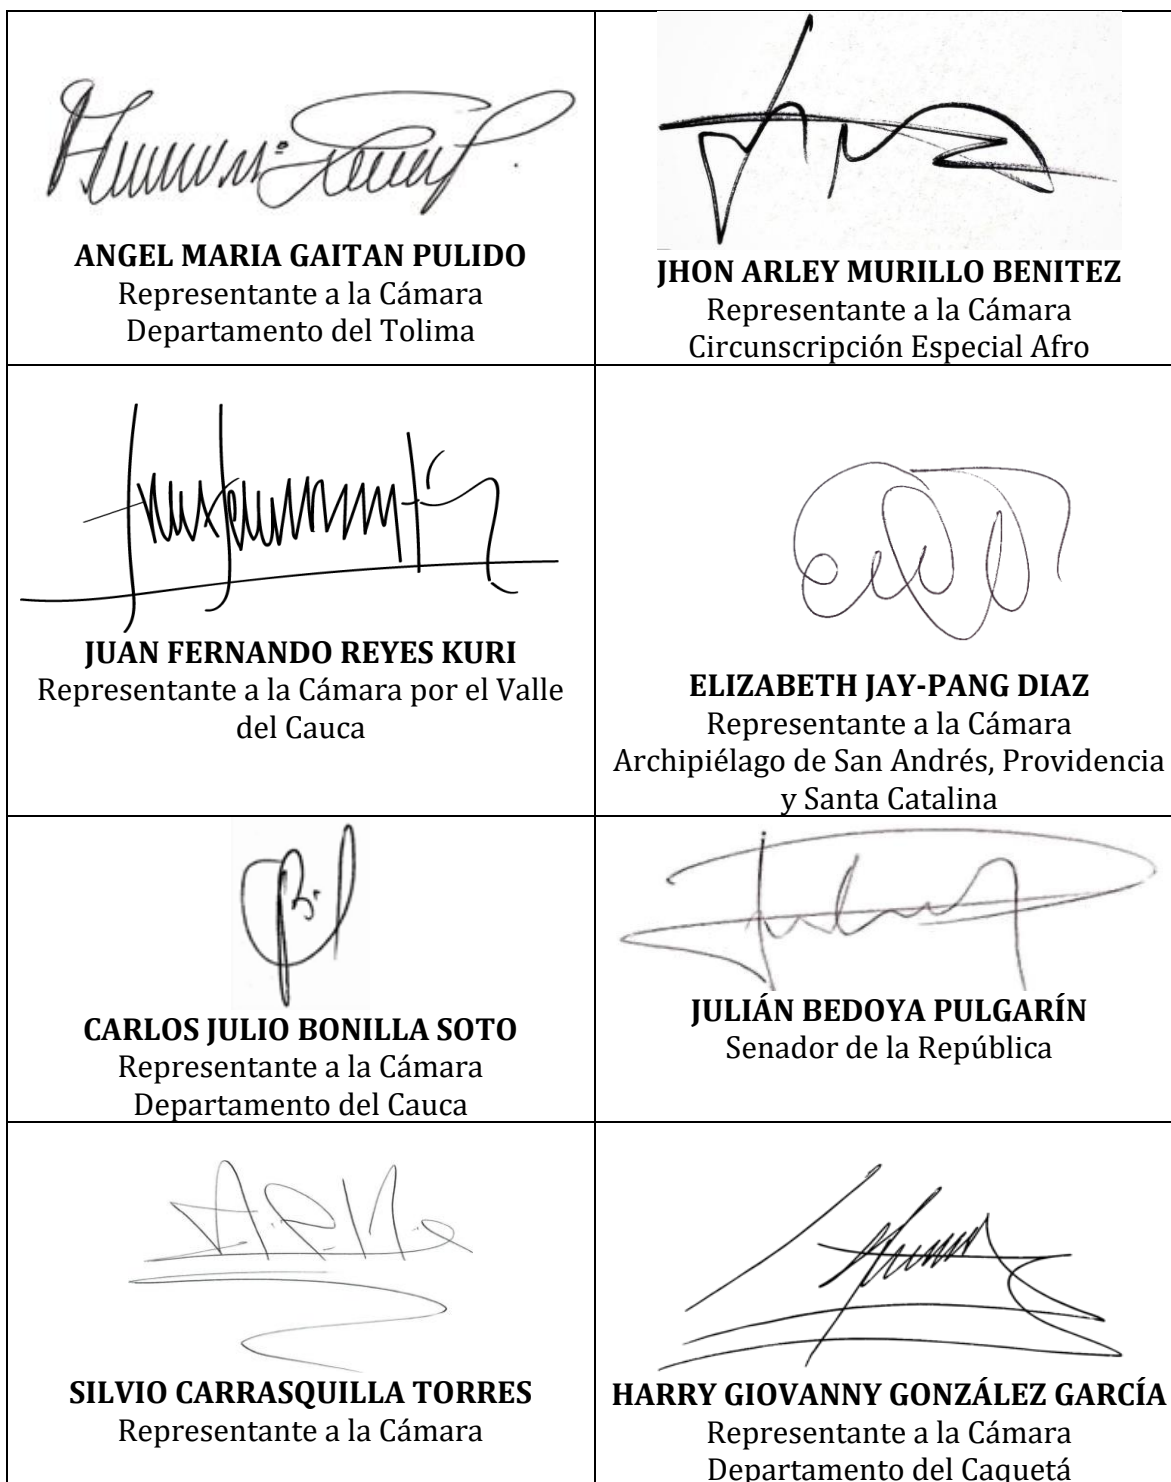 ANGEL MARIA GAITAN PULIDO
Representante a la Cámara
Departamento del Tolima
JHON ARLEY MURILLO BENITEZ
Representante a la Cámara
Circunscripción Especial Afro
JUAN FERNANDO REYES KURI
Representante a la Cámara por el Valle
del Cauca
ELIZABETH JAY-PANG DIAZ
Representante a la Cámara
Archipiélago de San Andrés, Providencia
y Santa Catalina
CARLOS JULIO BONILLA SOTO
Representante a la Cámara
Departamento del Cauca
JULIÁN BEDOYA PULGARÍN
Senador de la República
SILVIO CARRASQUILLA TORRES
Representante a la Cámara
HARRY GIOVANNY GONZÁLEZ GARCÍA
Representante a la Cámara
Departamento del Caquetá